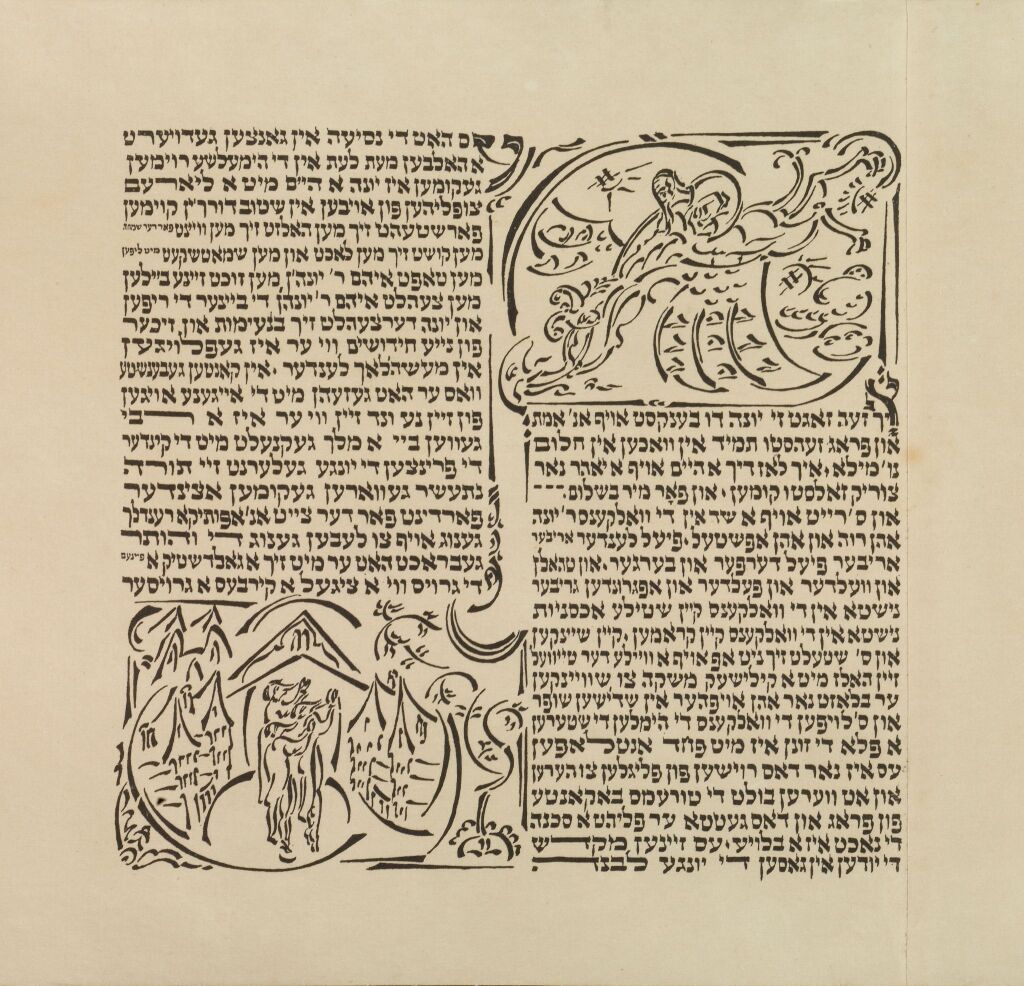 יר זעה זאגט זי יונה דו בענקסט אויף אנ׳ אמת
און פראג זעהסטו תמיד אין וואכען אין חלום
נו׳ מילא, איך לאז דיך א היים אויף א יאהר נאר
צוריק זאלסטו קומען, און פאר מיר בשלום. ־־־
און ס׳רייט אויף א שד אין די וואלקענס ר׳ יונה
אהן רוה און אהן אפשטעל, פיעל לענדער אריבער
אריבער פיעל דערפער און בערגער. און טהאלן
און וועלדער און פעלדער און אפגרונדען גריבער
נישטא אין די וואלקענס קיין שטילע אכסניות
נישטא אין די וואלקענס קיין קראמען, קיין שיינקען
און ס׳ שטעלט זיך ניט אפ אויף א ווילע דער טייוועל
זיין האלז מיט א קילישעק משקה צו שוויינקען
ער בלאזט נאר אהן אויפהער אין שדישען שופר
און ס׳לויפען די וואלקענס די הימלען די שטערען
א פלא די זונן איז מיט פחד אנטלאפען
עס איז נאר דאס רוישען פון פליגלען צו הערען
און אט ווערען בולט די טורעמס באקאנטע
פון פראג און דאס געטטא ער פליהט א סכנה
די נאכט איז א בלויע, עס זיינען מקדש
די יודען אין גאסען די יונגע לבנה
אס האט די נסיעה אין גאנצען געדויערט
א האלבען מעת לעת אין די הימעלשע רוימען
געקומען איז יונה א היים מיט א ליארעם
צופליהען פון אויבען אין שטוב דורך'ן קוימען
פארשטעהט זיך מען האלזט זיך מען וויינט פאר דער שמחה
מען קושט זיך מען לאכט און מען שמאטשקעט מיט ליפען
מען טאפט איהם ר׳ יונה'ן, מען זוכט זיינע ביילען
מען צעהלט איהם ר׳ יונהן די ביינער די ריפען
און יונה דערצעהלט זיך בנעימות און זיכער
פון נייע חידושים, ווי ער איז געפלויגען
אין מעשהלאך לענדער, אין קאנטען געבענשטע
וואס ער האט געזעהן מיט די אייגענע אויגען
פון זיין נע ונד זיין ווי ער איז א רבי
געווען ביי א מלך געקנעלט מיט די קינדער
די פרינצען די יונגע געלערנט זיי תורה
נתעשר געווארען געקומען אצינדער
פארדינט פאר דער צייט אנ׳אפותיקא רענדלך
גענוג אויף צו לעבען גענוג די והותר
געבראכט האט ער מיט זיך א גאלדשטיק א
די גרויס ווי א ציגעל א קירבעס א גרויסער